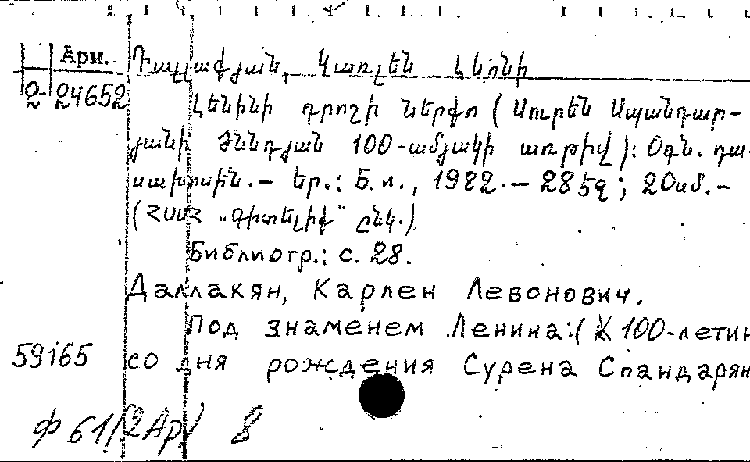 Арм.
2 24652
Դալլաքյան, Կառլեն Լևոնի
Լենինի դրոշի ներքո (Սուրեն Սպանդար-
յանի ծննդյան 100-ամյակի առթիվ): Օգն. դա-
սախոսին.- Եր.: Б.и., 1982.- 28 էջ; 20սմ.-
(ՀՍՍՀ „Գիտելիք" ընկ.)
Библиогр.: с. 28.
Даллакян, Карлен Левонович.
Под знаменем Ленина: (К 100-летию
59165 со дня рождения Сурена Спандарян
ф 61/2Ар/ 8